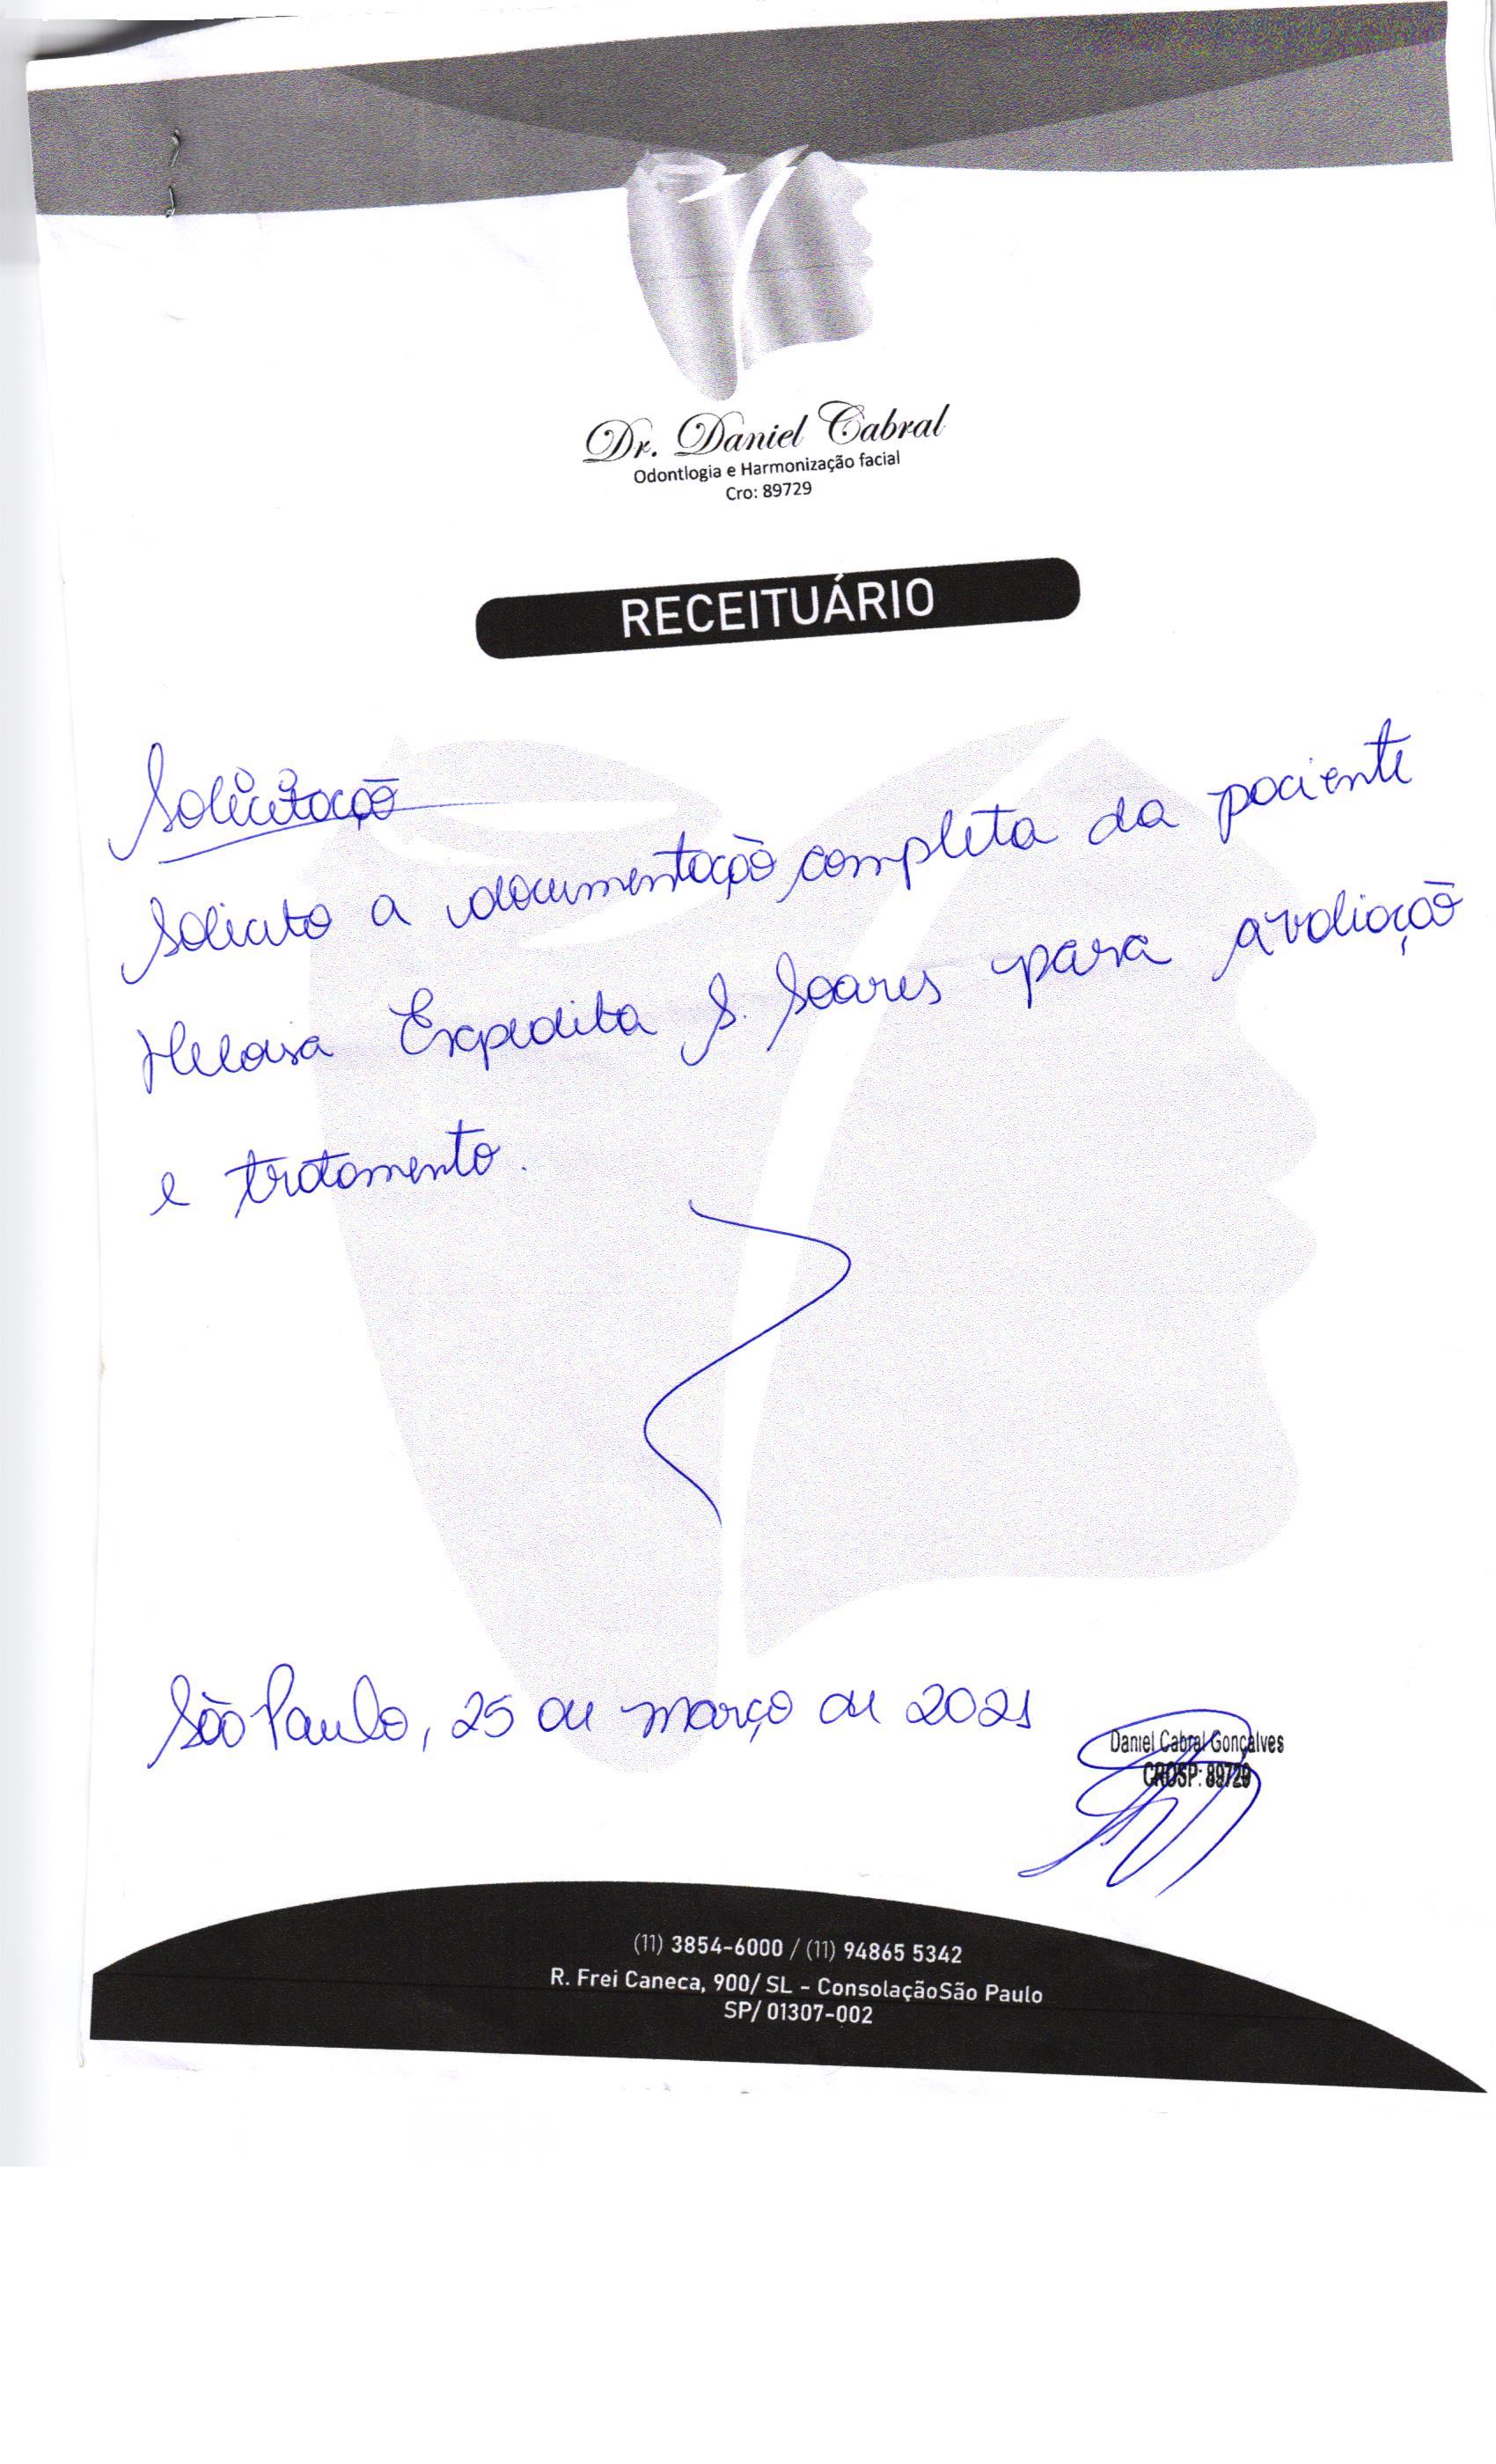 Dr. Daniel Cabral
Odontlogia e Harmonização facial
Cro: 89729
RECEITUÁRIO
Solicitação
Solicito a documentação completa da paciente
Heloisa Expedita S. Soares para avaliação
e tratamento.
São Paulo, 25 de março de 2021
Daniel Cabral Gonçalves
CROSP: 89729
(11) 3854-6000 / (11) 94865 5342
R. Frei Caneca, 900/ SL - ConsolaçãoSão Paulo
SP/ 01307-002